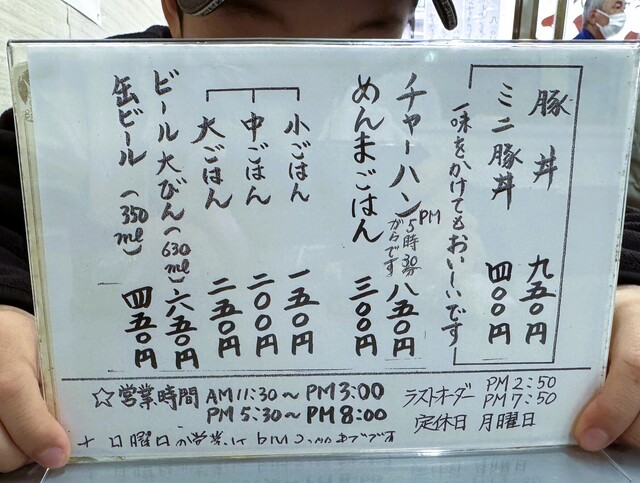 豚丼 九五〇円
ミニ豚丼 四〇〇円
一味をかけてもおいしーいです
チャーハン PM5時30分からです 八五〇円
めんまごはん 三〇〇円
小ごはん 一五〇円
中ごはん 二〇〇円
大ごはん 二五〇円
ビール大びん(630ml) 六五〇円
缶ビール(350ml) 四五〇円
☆営業時間 AM11:30～PM3:00
PM5:30～PM8:00
ラストオーダー PM2:50
PM7:50
定休日 月曜日
日曜日の営業は PM までです